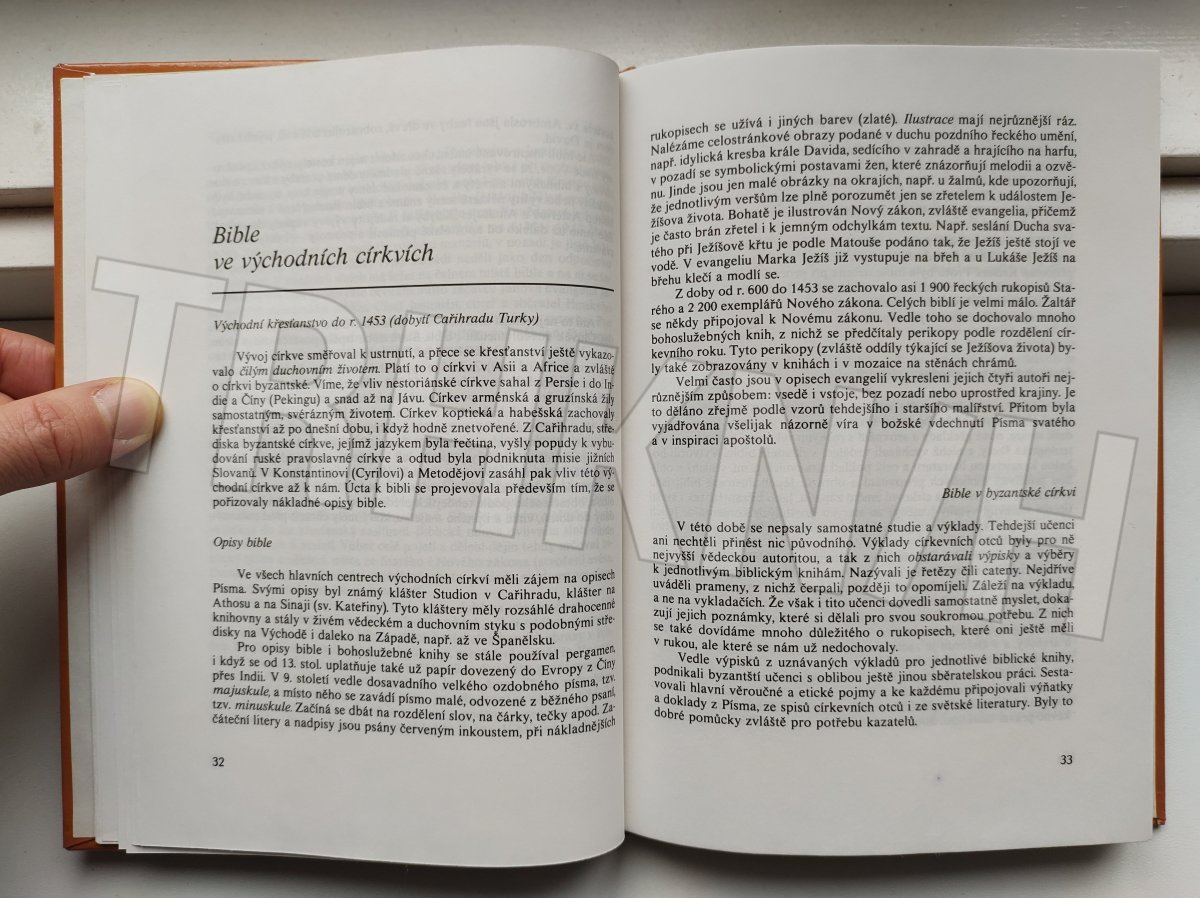 Bible
ve východních církvích
Východní křesťanství do r. 1453 (dobytí Cařihradu Turky)
Vývoj církve směřoval k ustrnutí, a přece se křesťanství ještě vykazo-
valo čilým duchovním životem. Platí to o církvi v Asii a Africe a zvláště
o církvi byzantské. Víme, že vliv nestoriánské církve sahal z Persie i do In-
die a Číny (Pekingu) a snad až na Jávu. Církev arménská a gruzínská žily
samostatným, svérázným životem. Církev koptická a habešská zachovaly
křesťanství až po dnešní dobu, i když hodně znetvořené. Z Cařihradu, stře-
diska byzantské církve, jejímž jazykem byla řečtina, vyšly popudy k vybu-
dování ruské pravoslavné církve a odtud byla podniknuta misie jižních
Slovanů. V Konstantinovi (Cyrilovi) a Metodějovi zasáhl pak vliv této vý-
chodní církve až k nám. Úcta k bibli se projevovala především tím, že se
pořizovaly nákladné opisy bible.
Opisy bible
Ve všech hlavních centrech východních církví měli zájem na opisech
Písma. Svými opisy byl známý klášter Studion v Cařihradu, klášter na
Athosu a na Sinaji (sv. Kateřiny). Tyto kláštery měly rozsáhlé drahocenné
knihovny a stály v živém vědeckém a duchovním styku s podobnými stře-
disky na Východě i daleko na Západě, např. až ve Španělsku.
Pro opisy bible i bohoslužebné knihy se stále používal pergamen,
i když se od 13. stol. uplatňuje také už papír dovezený do Evropy z Číny
přes Indii. V 9. století vedle dosavadního velkého ozdobného písma, tzv.
majuskule, a místo něho se zavádí písmo malé, odvozené z běžného psaní,
tzv. minuskule. Začíná se dbát na rozdělení slov, na čárky, tečky apod. Za-
čáteční litery a nadpisy jsou psány červeným inkoustem, při nákladnějších
32
rukopisech se užívá i jiných barev (zlaté). Ilustrace mají nejrůznější ráz.
Nalézáme celostránkové obrazy podané v duchu pozdního řeckého umění,
např. idylická kresba krále Davida, sedícího v zahradě a hrajícího na harfu,
v pozadí se symbolickými postavami žen, které znázorňují melodii a ozvě-
nu. Jinde jsou jen malé obrázky na okrajích, např. u žalmů, kde upozorňují,
že jednotlivým veršům lze plně porozumět jen se zřetelem k událostem Je-
žíšova života. Bohatě je ilustrován Nový zákon, zvláště evangelia, přičemž
je často brán zřetel i k jemným odchylkám textu. Např. seslání Ducha sva-
tého při Ježíšově křtu je podle Matouše podáno tak, že Ježíš ještě stojí ve
vodě. V evangeliu Marka Ježíš již vystupuje na břeh a u Lukáše Ježíš na
břehu klečí a modlí se.
Z doby od r. 600 do 1453 se zachovalo asi 1 900 řeckých rukopisů Sta-
rého a 2 200 exemplářů Nového zákona. Celých biblí je velmi málo. Žaltář
se někdy připojoval k Novému zákonu. Vedle toho se dochovalo mnoho
bohoslužebných knih, z nichž se předčítaly perikopy podle rozdělení cír-
kevního roku. Tyto perikopy (zvláště oddíly týkající se Ježíšova života) by-
ly také zobrazovány v knihách i v mozaice na stěnách chrámů.
Velmi často jsou v opisech evangelií vykresleni jejich čtyři autoři nej-
různějším způsobem: vsedě i vstoje, bez pozadí nebo uprostřed krajiny. Je
to děláno zřejmě podle vzorů tehdejšího i staršího malířství. Přitom byla
vyjadřována všelijak názorně víra v božské vdechnutí Písma svatého
a v inspiraci apoštolů.
Bible v byzantské církvi
V této době se nepsaly samostatné studie a výklady. Tehdejší učenci
ani nechtěli přinést nic původního. Výklady církevních otců byly pro ně
nejvyšší vědeckou autoritou, a tak z nich obstarávali výpisky a výběry
k jednotlivým biblickým knihám. Nazývali je řetězy čili cateny. Nejdříve
uváděli prameny, z nichž čerpali, později to opomíjeli. Záleží na výkladu,
a ne na vykladačích. Že však i tito učenci dovedli samostatně myslet, doka-
zují jejich poznámky, které si dělali pro svou soukromou potřebu. Z nich
se také dovídáme mnoho důležitého o rukopisech, které oni ještě měli
v rukou, ale které se nám už nedochovaly.
Vedle výpisků z uznávaných výkladů pro jednotlivé biblické knihy,
podnikali byzantští učenci s oblibou ještě jinou sběratelskou práci. Sesta-
vovali hlavní věroučné a etické pojmy a ke každému připojovali výňatky
a doklady z Písma, ze spisů církevních otců i ze světské literatury. Byly to
dobré pomůcky zvláště pro potřebu kazatelů.
33
TRHKNIH